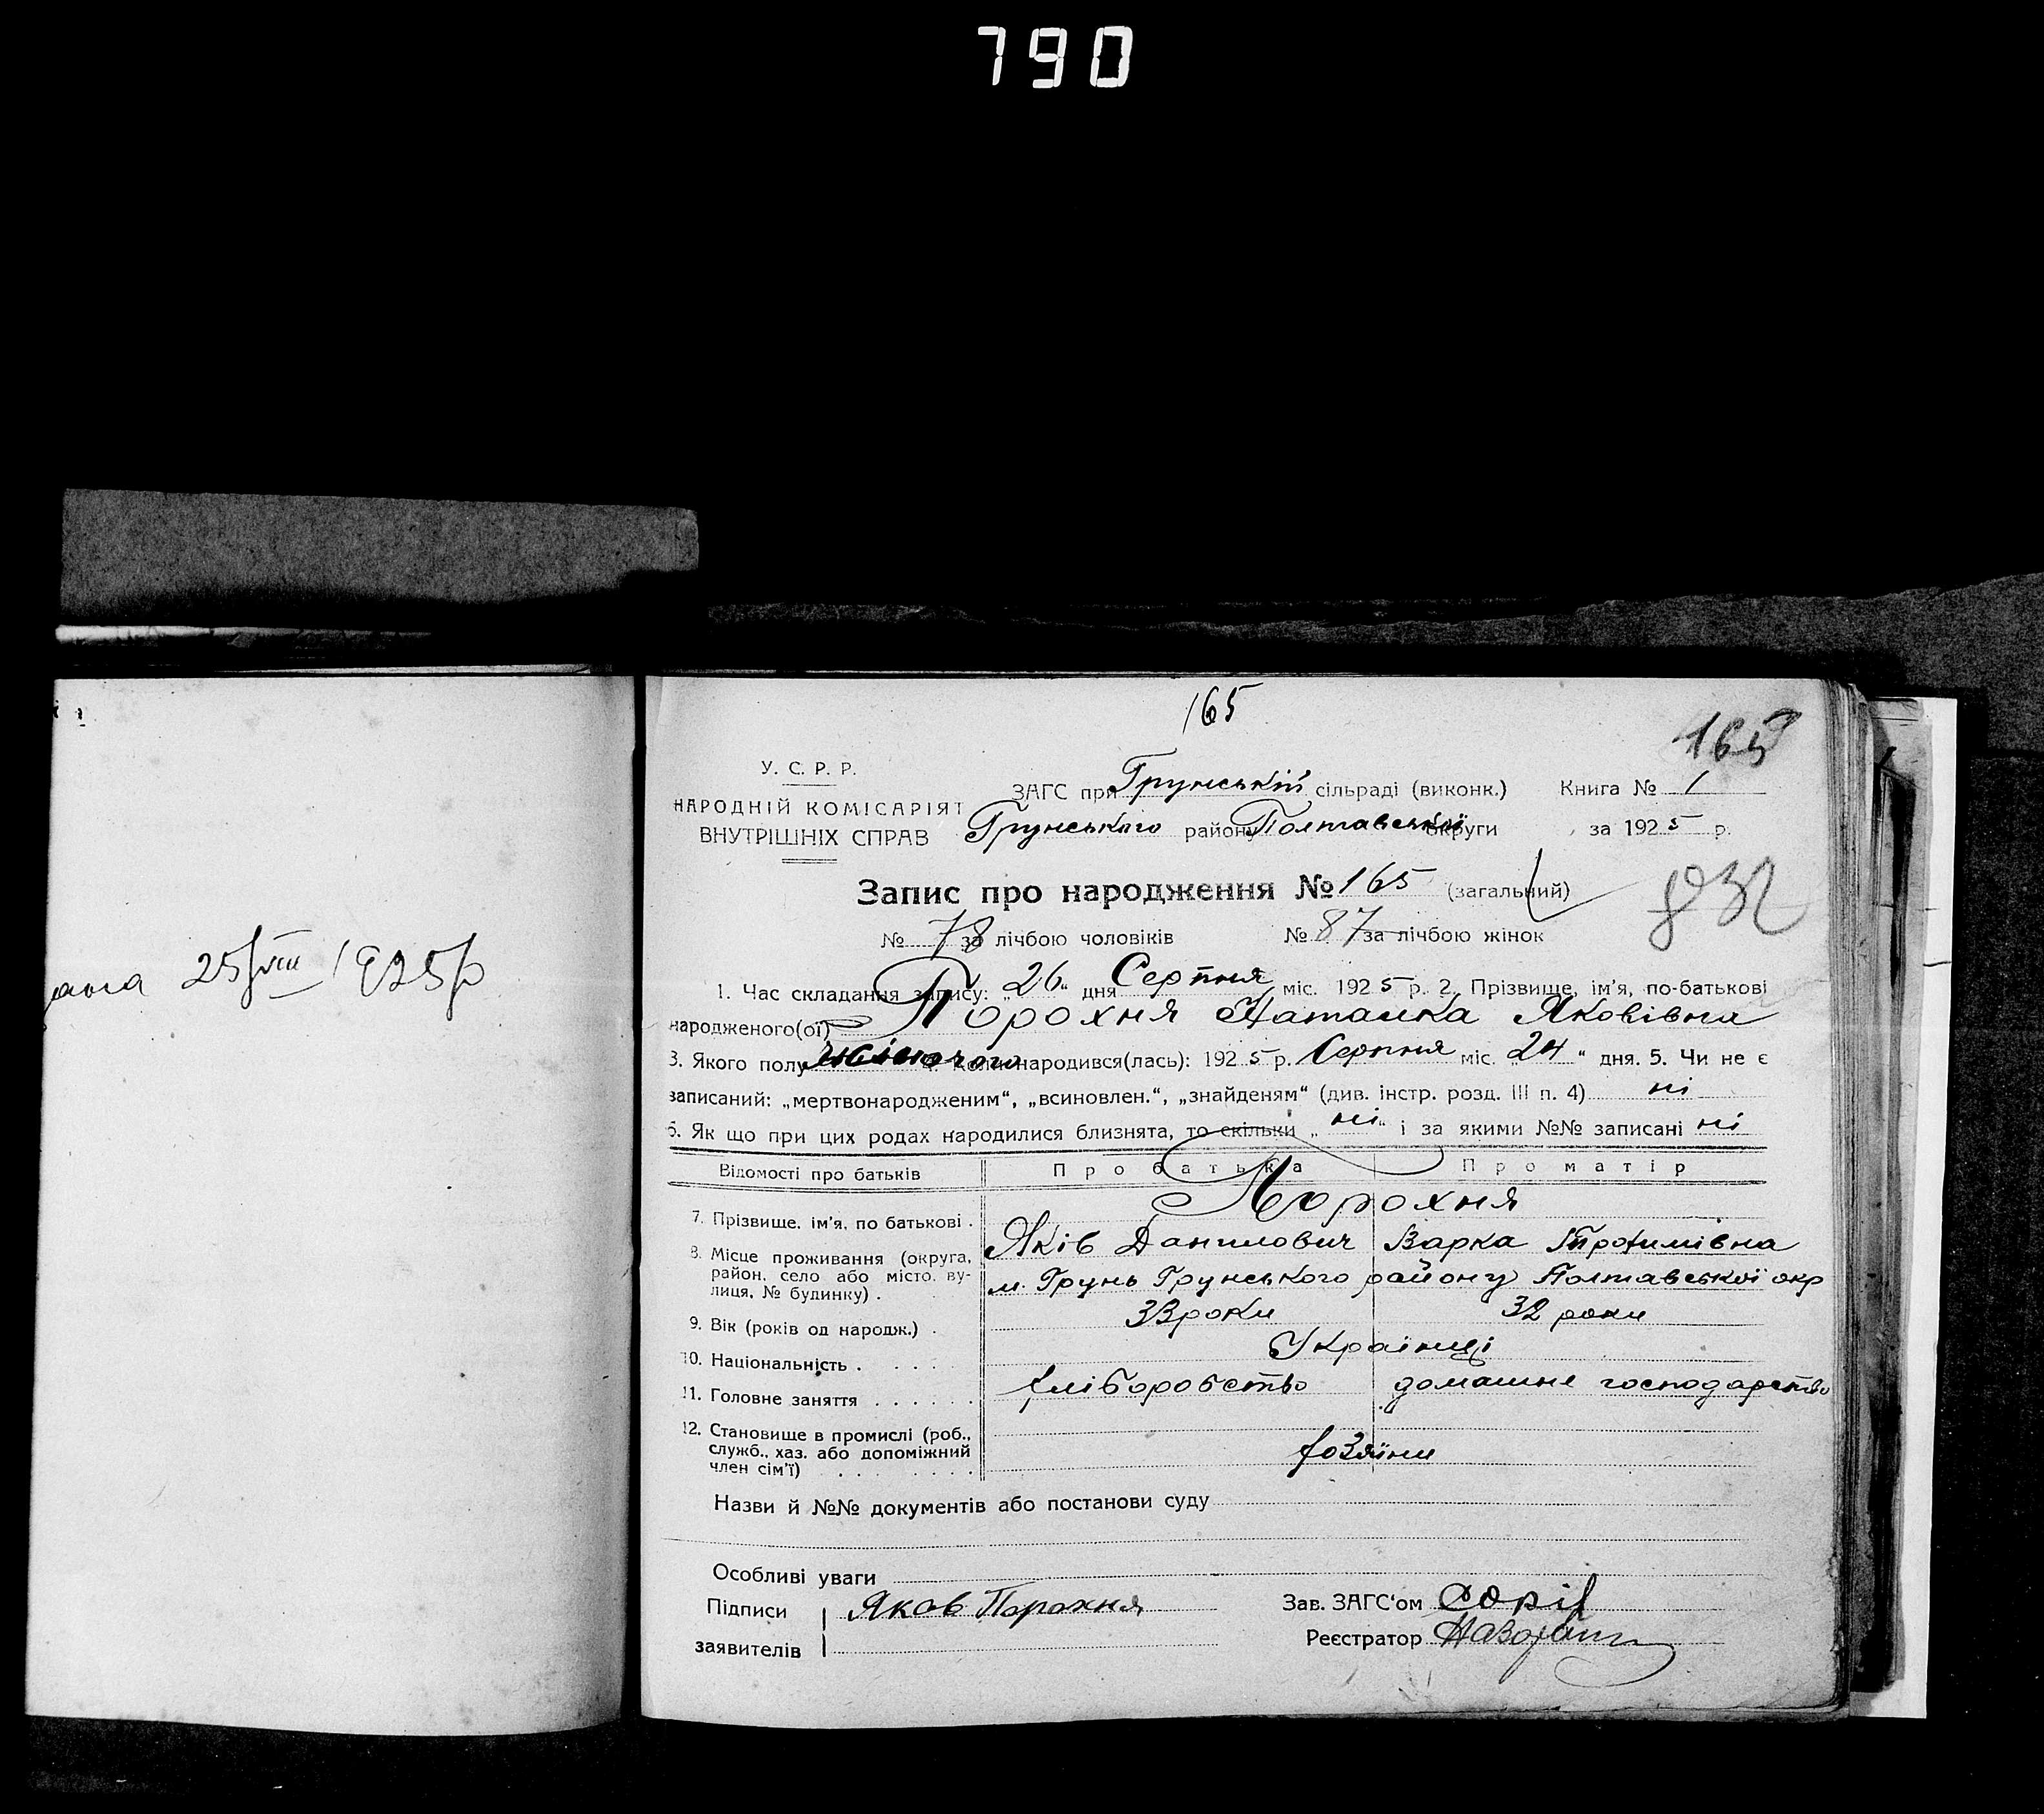 790
25/VIII 1925р
165
165
У. С. Р. Р.
НАРОДНІЙ КОМІСАРІЯТ
ВНУТРІШНІХ СПРАВ
ЗАГС при Грунській сільраді (виконк.) Книга № 1
Грунського району Полтавської округи за 1925 р.
Запис про народження № 165 (загальний)
№ 78 за лічбою чоловіків № 87 за лічбою жінок
1. Час складання запису: „26“ дня Серпня міс. 1925 р. 2. Прізвище, ім'я, по-батькові
народженого(ої) Порохня Наталка Яковівна
3. Якого полу жіночого 4. Коли народився(лась): 1925 р. Серпня міс. „24“ дня. 5. Чи не є
записаний: „мертвонародженим“, „всиновлен.“, „знайденям“ (див. інстр. розд. III п. 4) ні
6. Як що при цих родах народилися близнята, то скільки „ні“ і за якими №№ записані ні
Відомості про батьків Про батька Про матір
7. Прізвище, ім'я, по батькові . Порохня
Яків Данилович Варка Трохимівна
8. Місце проживання (округа, район, село або місто, ву-
лиця, № будинку) . м. Грунь Грунського району Полтавської окр
9. Вік (років од народж.) . 33 роки 32 роки
10. Національність . . . . . Українці
11. Головне заняття . . . . . . хліборобство домашнє господарство
12. Становище в промислі (роб.,
служб., хаз. або допоміжний
член сім'ї) . . . . . . . . хозяїни
Назви й №№ документів або постанови суду
Особливі уваги
Підписи Яков Порохня Зав. ЗАГС'ом
заявителів Реєстратор